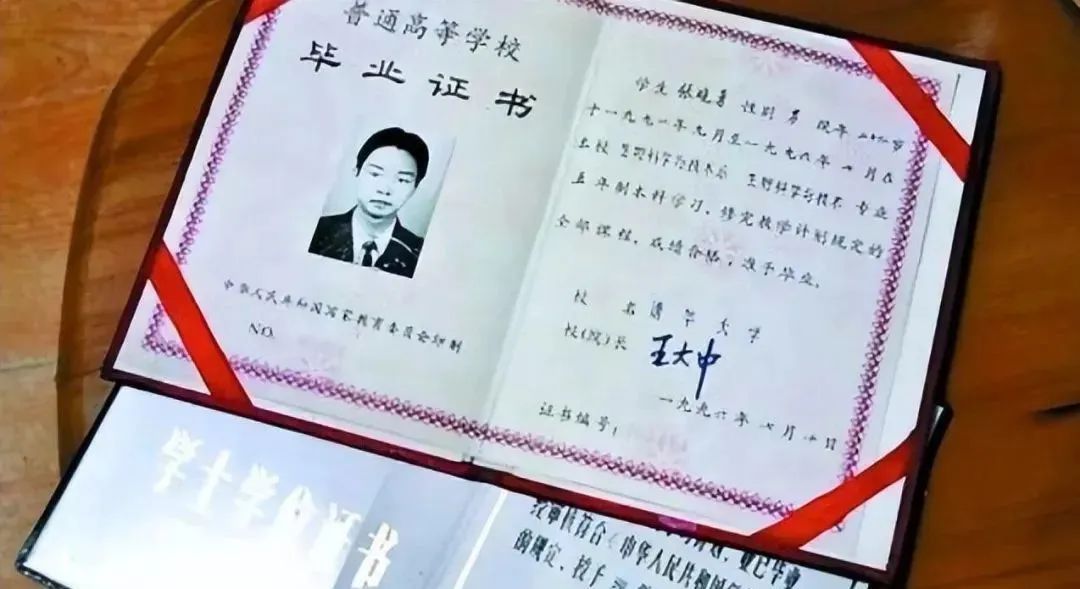 普通高等学校
毕业证书
中华人民共和国国家教育委员会印制
NO.
学生 张晓勇 性别 男 现年 二十 岁
一九九一年九月至一九九六年 七月在
本校 生物科学与技术系 生物科学与技术 专业
五年制本科学习，修完教学计划规定的
全部课程，成绩合格，准予毕业。
校 名 清华大学
校（院）长 王大中
一九九六年 七月 日
证书编号：
学士学位证书
业已毕业
经审核符合《中华人民共和国
的规定，授予